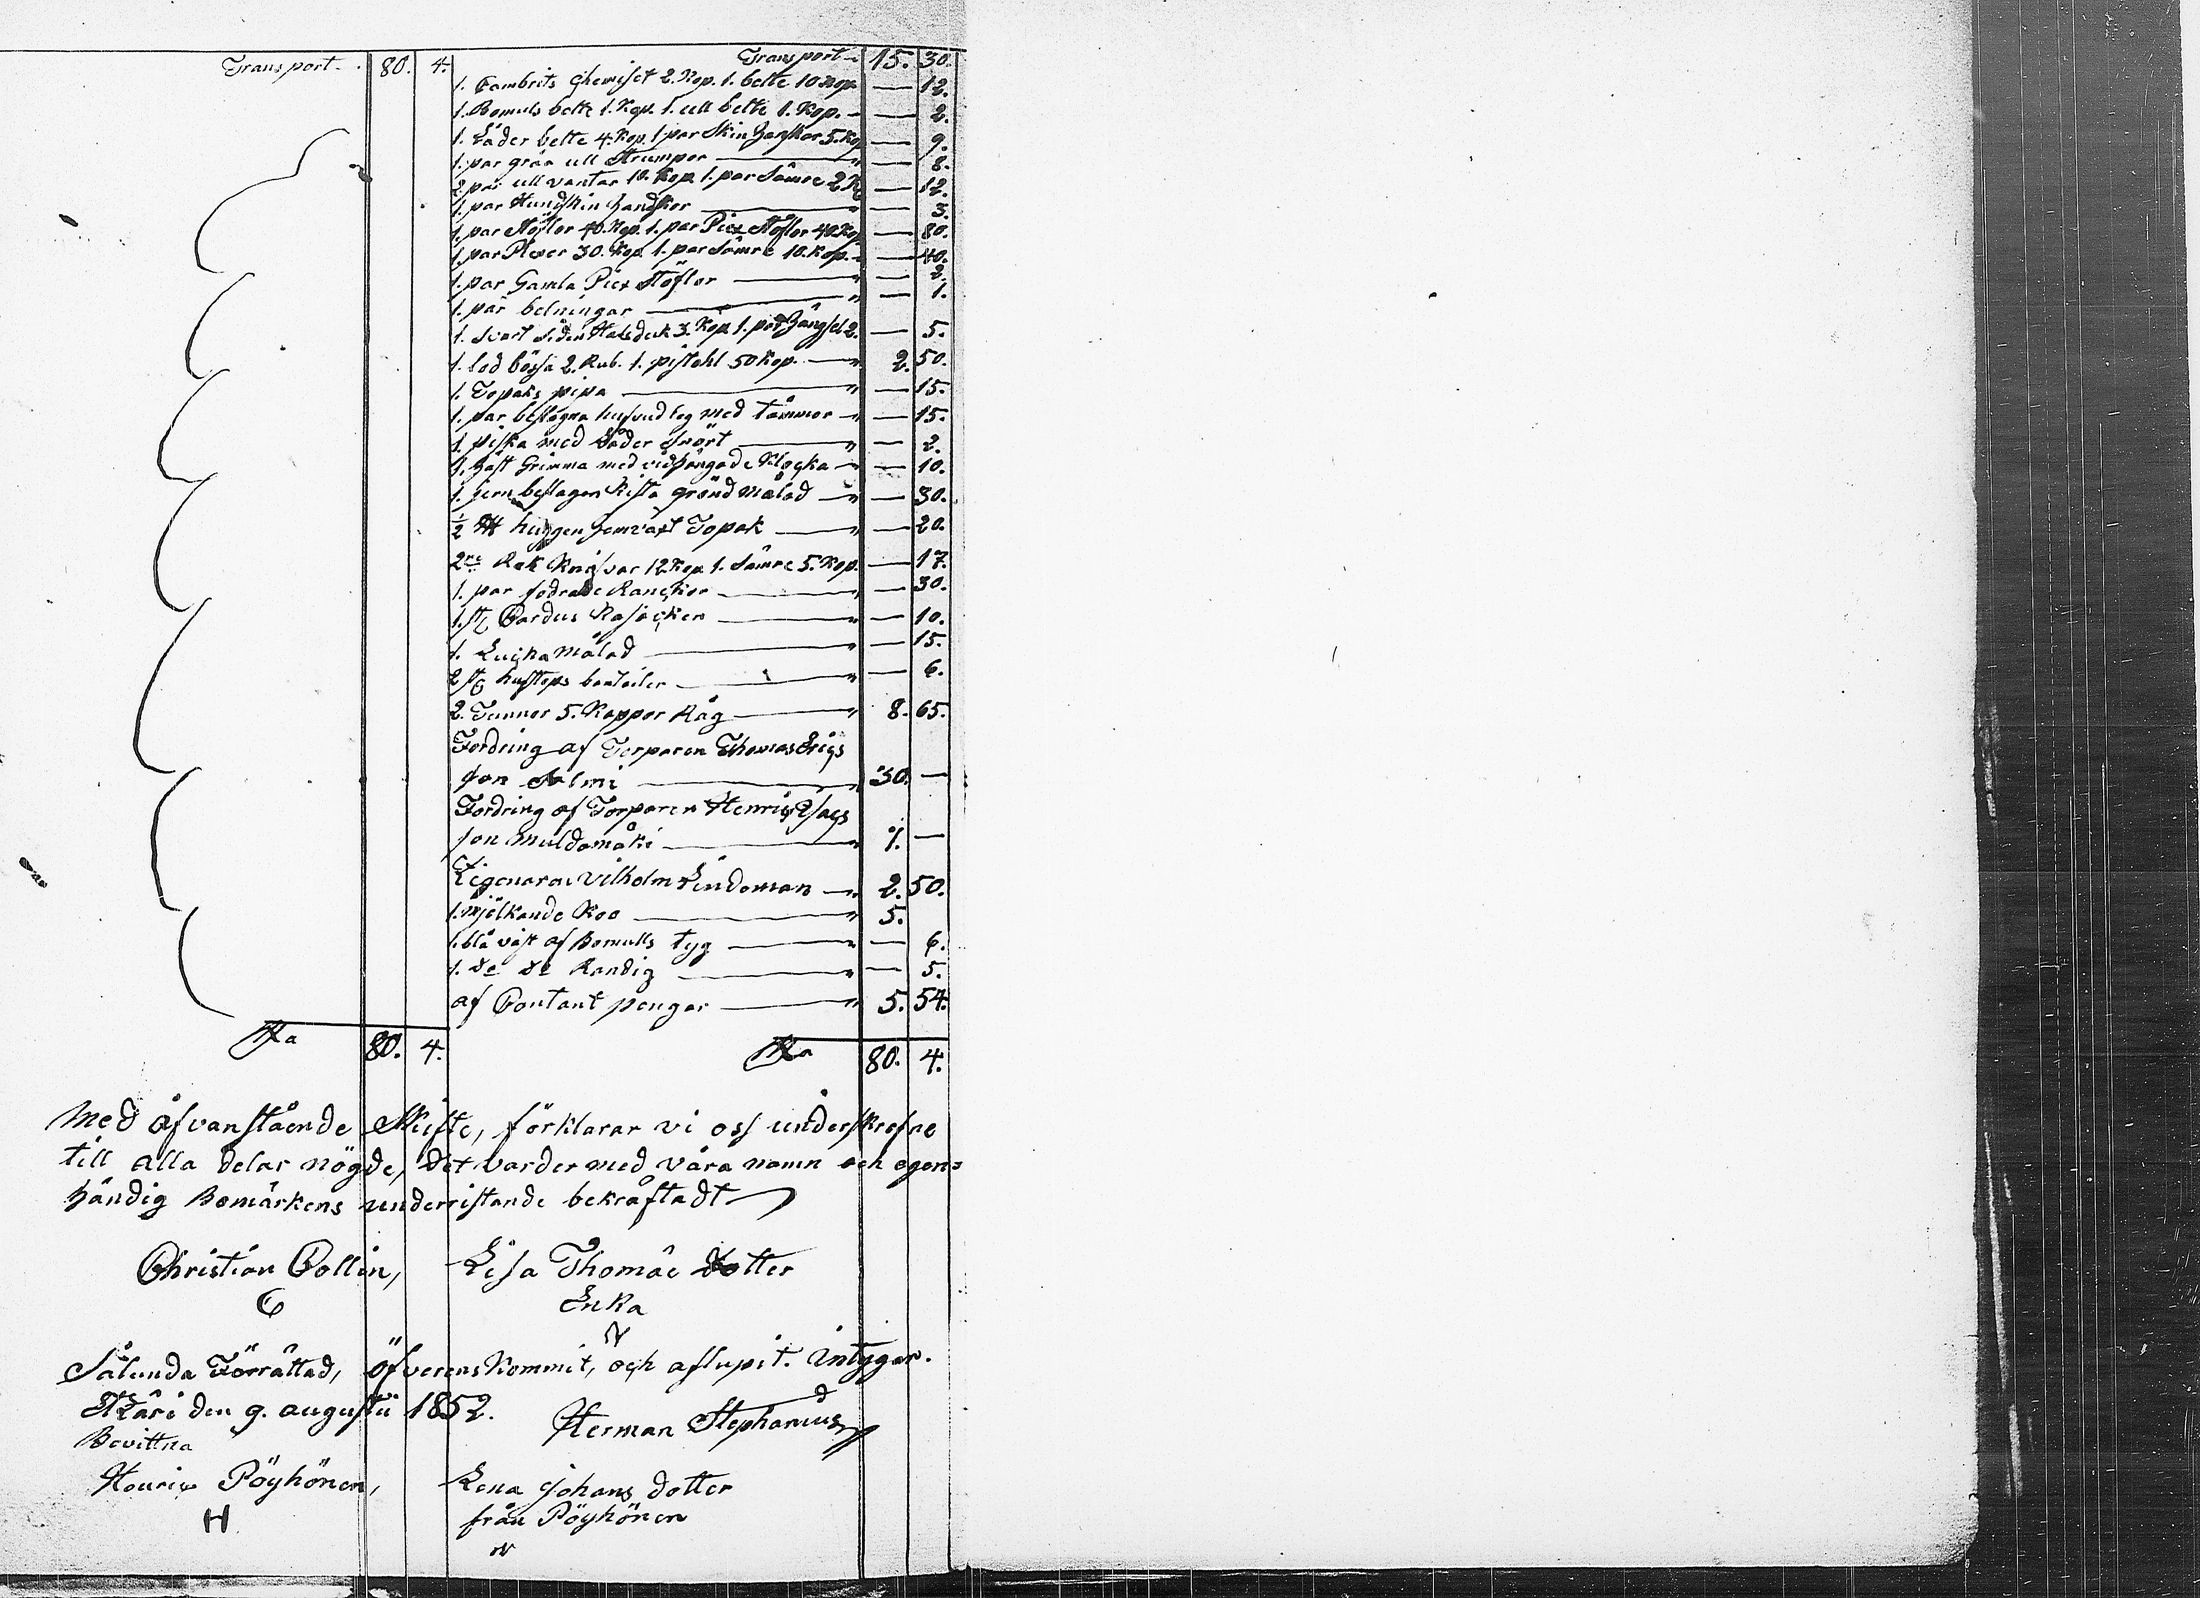 Transport 80. 4. Transport 15. 30.
1. Cambrits Chemiset 2. Kop. 1. belte 10 Kop — 12.
1. Bomuls belte 1. Kop. 1. ull belte 1. Kop. — 2.
1. Läder belte 4. Kop. 1 par Skin Hanskar 5. Kop — 9.
1. par gråa ull Strumpor — 8.
2 par ull vantar 10. Kop. 1. par Sämre 2 K — 12.
1. par Hundskin handskor — 3.
1. par Stöflor 40. Kop. 1. par Piex Stöflor 40. Kop — 80.
1. par Plexer 30. Kop. 1. par Sämre 10. Kop. — 40.
1. par Gamla Piex Stöflor — 2.
1. par belningar — 1.
1. Svart Siden Halsduk 3. Kop. 1. par Hängsel 2. — 5.
1. lod bössa 2. Rub. 1. pistohl 50 Kop. 2. 50.
1. Topaks pipa — 15.
1. par beslagna hufvud lag med tömmor — 15.
1. piska med Läder Snört — 2.
1. Häst Grimma med vidhängade Klocka — 10.
1. jern beslagen Kista grönd målad — 30.
½ ℔ huggen hemväxt Topak — 20.
2ne Rak Knifvar 12 Kop. 1. Sämre 5. Kop. — 17.
1. par fodrade — 30.
1. st Cardus — 10.
1. målad — 15.
2 st bouteiler — 6.
2. Tunnor 5. Kappor Råg 8. 65.
Fordring af Torparen Thomas Erics
son Salmi 30. —
Fordring af Torparen Henric Isacs
son Muldamäki 7. —
Ligonaren Vilholm Lindoman 2. 50.
1. mjölkande Koo 5.
1. blå väst af Bomulls tyg — 6.
1. do do Randig — 5.
af Contant pengar 5. 54.
S:a 80. 4. S:a 80. 4.
Med åfvanstående Skifte, förklarar vi oss underskrefne
till alla delar nögde, det varder med våra namn och egen=
händig Bomärkens underristande bekräftadt
Christian Collin, Lisa Thomæ dotter
C Enka
N
Sålunda Förrättad, öfverenskommit, och aflupit. Intygar.
den 9. augustii 1852. Herman Stephanius
Bevittna
Henric Pöyhönen, Lena Johans dotter
H från Pöyhönen
N